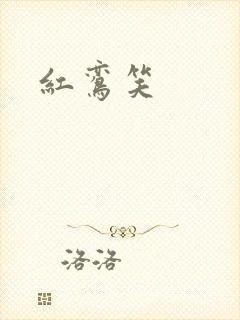 紅鸞笑
洛洛